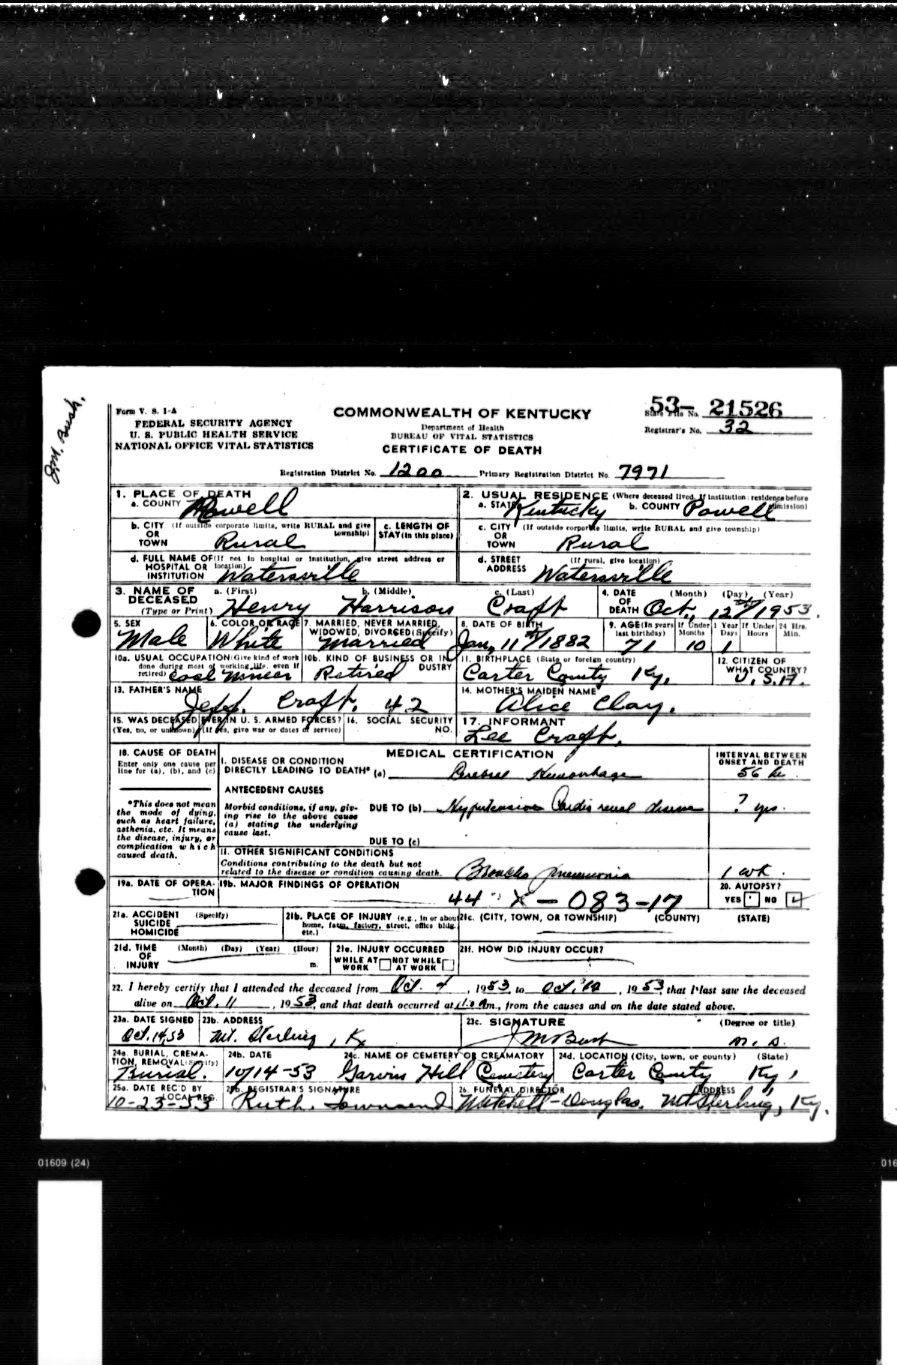 J.M. Bush.
Form V. S. 1-A
FEDERAL SECURITY AGENCY
U. S. PUBLIC HEALTH SERVICE
NATIONAL OFFICE VITAL STATISTICS
COMMONWEALTH OF KENTUCKY
Department of Health
BUREAU OF VITAL STATISTICS
CERTIFICATE OF DEATH
State File No. 53- 21526
Registrar's No. 32
Registration District No. 1200 Primary Registration District No. 7971
1. PLACE OF DEATH
a. COUNTY Powell
2. USUAL RESIDENCE (Where deceased lived. If institution: residence before admission)
a. STATE Kentucky b. COUNTY Powell
b. CITY (If outside corporate limits, write RURAL and give township)
OR
TOWN Rural
c. LENGTH OF
STAY (in this place)
c. CITY (If outside corporate limits, write RURAL and give township)
OR
TOWN Rural
d. FULL NAME OF (If not in hospital or institution, give street address or location)
HOSPITAL OR
INSTITUTION Watersville
d. STREET (If rural, give location)
ADDRESS Watersville
3. NAME OF DECEASED
(Type or Print)
a. (First) b. (Middle) c. (Last)
Henry Harrison Craft
4. DATE OF DEATH (Month) (Day) (Year)
Oct. 12th 1953
5. SEX
Male
6. COLOR OR RACE
White
7. MARRIED, NEVER MARRIED,
WIDOWED, DIVORCED (Specify)
Married
8. DATE OF BIRTH
Jan, 11th 1882
9. AGE (In years last birthday)
71
If Under 1 Year
Months Days
10 1
If Under 24 Hrs.
Hours Min.
10a. USUAL OCCUPATION (Give kind of work done during most of working life, even if retired)
Coal Miner
10b. KIND OF BUSINESS OR INDUSTRY
Retired
11. BIRTHPLACE (State or foreign country)
Carter County Ky,
12. CITIZEN OF
WHAT COUNTRY?
U. S. A.
13. FATHER'S NAME
Jeff. Craft. 42
14. MOTHER'S MAIDEN NAME
Alice Clay.
15. WAS DECEASED EVER IN U. S. ARMED FORCES?
(Yes, no, or unknown) (If yes, give war or dates of service)
16. SOCIAL SECURITY
NO.
17. INFORMANT
Lee Craft.
18. CAUSE OF DEATH
Enter only one cause per
line for (a), (b), and (c)
*This does not mean
the mode of dying,
such as heart failure,
asthenia, etc. It means
the disease, injury, or
complication which
caused death.
MEDICAL CERTIFICATION
INTERVAL BETWEEN
ONSET AND DEATH
I. DISEASE OR CONDITION
DIRECTLY LEADING TO DEATH* (a) Hemorrhage 56 hr
ANTECEDENT CAUSES
Morbid conditions, if any, giv-
ing rise to the above cause
(a) stating the underlying
cause last.
DUE TO (b) Hypertensive Cardio renal disease ? yrs.
DUE TO (c)
II. OTHER SIGNIFICANT CONDITIONS
Conditions contributing to the death but not
related to the disease or condition causing death.
Broncho pneumonia 1 wk
19a. DATE OF OPERA-
TION
19b. MAJOR FINDINGS OF OPERATION
44 X - 083-17
20. AUTOPSY?
YES NO
21a. ACCIDENT (Specify)
SUICIDE
HOMICIDE
21b. PLACE OF INJURY (e.g., in or about
home, farm, factory, street, office bldg.,
etc.)
21c. (CITY, TOWN, OR TOWNSHIP) (COUNTY) (STATE)
21d. TIME (Month) (Day) (Year) (Hour)
OF
INJURY m.
21e. INJURY OCCURRED
WHILE AT WORK NOT WHILE AT WORK
21f. HOW DID INJURY OCCUR?
22. I hereby certify that I attended the deceased from Oct. 4, 1953 to Oct. 12, 1953 that I last saw the deceased
alive on Oct. 11, 1953, and that death occurred at m., from the causes and on the date stated above.
23a. DATE SIGNED
Oct. 14 53
23b. ADDRESS
Mt. Sterling, Ky
23c. SIGNATURE (Degree or title)
J M Bush M. D.
24a. BURIAL, CREMA-
TION, REMOVAL (Specify)
Burial.
24b. DATE
10/14-53
24c. NAME OF CEMETERY OR CREMATORY
Garvin Hill Cemetery
24d. LOCATION (City, town, or county) (State)
Carter County Ky,
25a. DATE REC'D BY
LOCAL REG.
10-23-53
25b. REGISTRAR'S SIGNATURE
Ruth. Townsend
26. FUNERAL DIRECTOR ADDRESS
Mitchell-Douglas. Mt Sterling, Ky.
01609 (24)
016